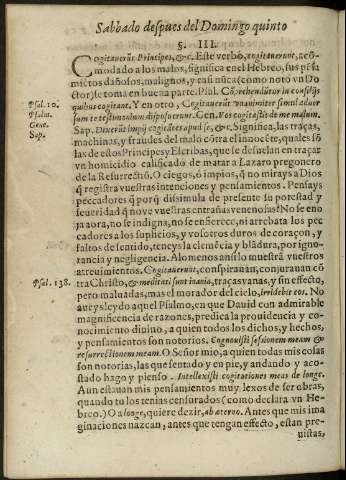 Sabbado despues del Domingo quinto
§. III.
Cogitauerũt Principes, &c. Este verbo, cogitauerunt, acõ-
modado a los malos, significa en el Hebreo, sus pẽsa
miẽtos dañosos, malignos, y casi nũca (como notó vn Do
ctor) se toma en buena parte. Psal. Cõprehendũtur in consilijs
Psal. 10.
quibus cogitant. Y en otro, Cogitauerũt vnanimiter simul aduer
Psalm.
sum te testimentum disposuerunt. Gen. Vos cogitastis de me malum.
Gene.
Sap. Dixerũt impij cogitãtes apud se, &c. Significa, las traças,
Sap.
machinas, y fraudes del malo cõtra el innocẽte, quales sõ
las de estos Principes y Escribas, que se desuelan en traçar
vn homicidio calificado de matar a Lazaro pregonero
de la Resurrectiõ. O ciegos, ó impios, q̃ no mirays a Dios
q̃ registra vuestras intenciones y pensamientos. Pensays
peccadores q̃ porq̃ dissimula de presente su potestad y
seueridad q̃ no ve vuestras entrañas venenosas? No se eno
ja aora, no se indigna, no se enfierece, ni arrebata los pec
cadores a los suplicios, y vosotros duros de coraçon, y
faltos de sentido, teneys la clemẽcia y blãdura, por igno-
rancia y negligencia. Alomenos ansi lo muestrã vuestros
atreuimientos. Cogitauerunt, conspirauan, conjurauan cõ
tra Christo, & meditati sunt inania, traças vanas, y sin effecto,
Psal. 138.
pero maluadas, mas el morador del cielo, irridebit eos. No
aueys leydo aquel Psalmo, en que Dauid con admirable
magnificencia de razones, predica la prouidencia y co-
nocimiento diuino, a quien todos los dichos, y hechos,
y pensamientos son notorios. Cognouisti sessionem meam &
resurrectionem meam. O Señor mio, a quien todas mis cosas
son notorias, las que sentado y en pie, y andando y aco-
stado hago y pienso. Intellexisti cogitationes meas de longe.
Aun estauan mis pensamientos muy lexos de ser obras,
quando tu los tenias censurados (como declara vn He-
breo.) O a longe, quiere dezir, ab aterno. Antes que mis ima
ginaciones nazcan, antes que tengan effecto, estan pre-
uistas,